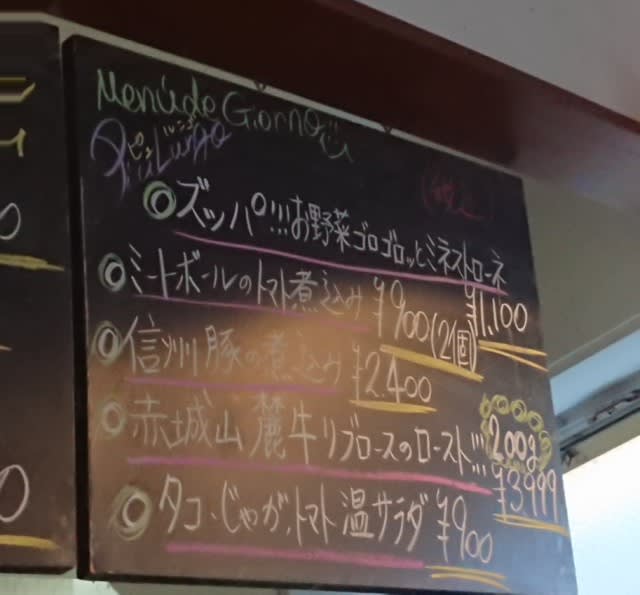 Menú de Giorno
ピュ ルンゴ
Piu Lungo
(税込)
◎ズッパ!!!お野菜ゴロゴロッとミネストローネ
¥1,100
◎ミートボールのトマト煮込み ¥900(2個)
◎信州豚の煮込み ¥2.400
◎赤城山麓牛リブロースのロースト!!! 200g
¥3,999
◎タコ、じゃが、トマト温サラダ ¥900